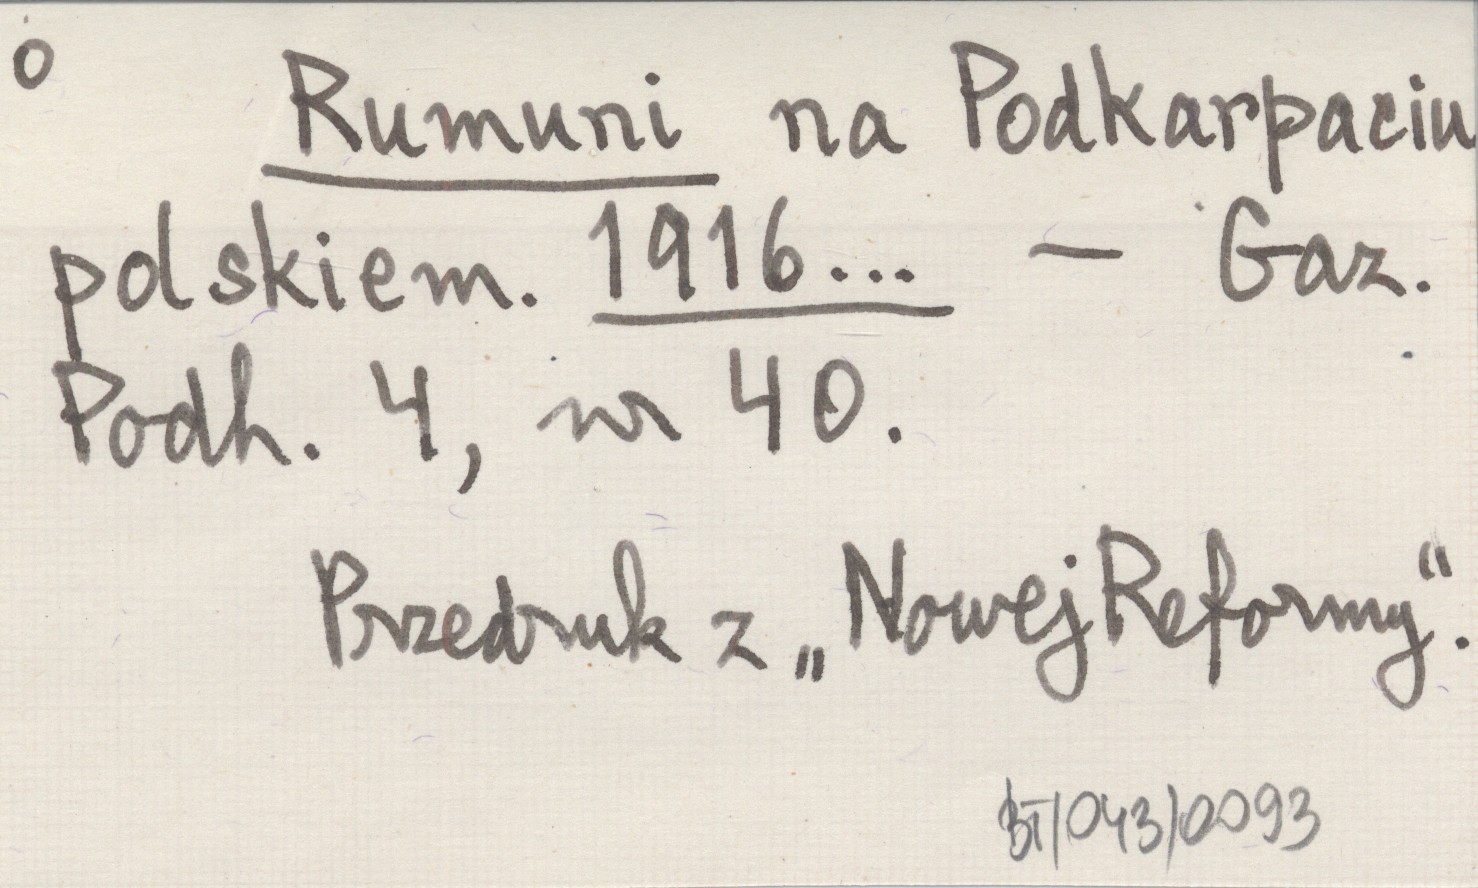 o
Rumuni na Podkarpaciu
polskiem. 1916... – Gaz.
Podh. 4, nr 40.
Przedruk z „Nowej Reformy“.
BT/043/0093